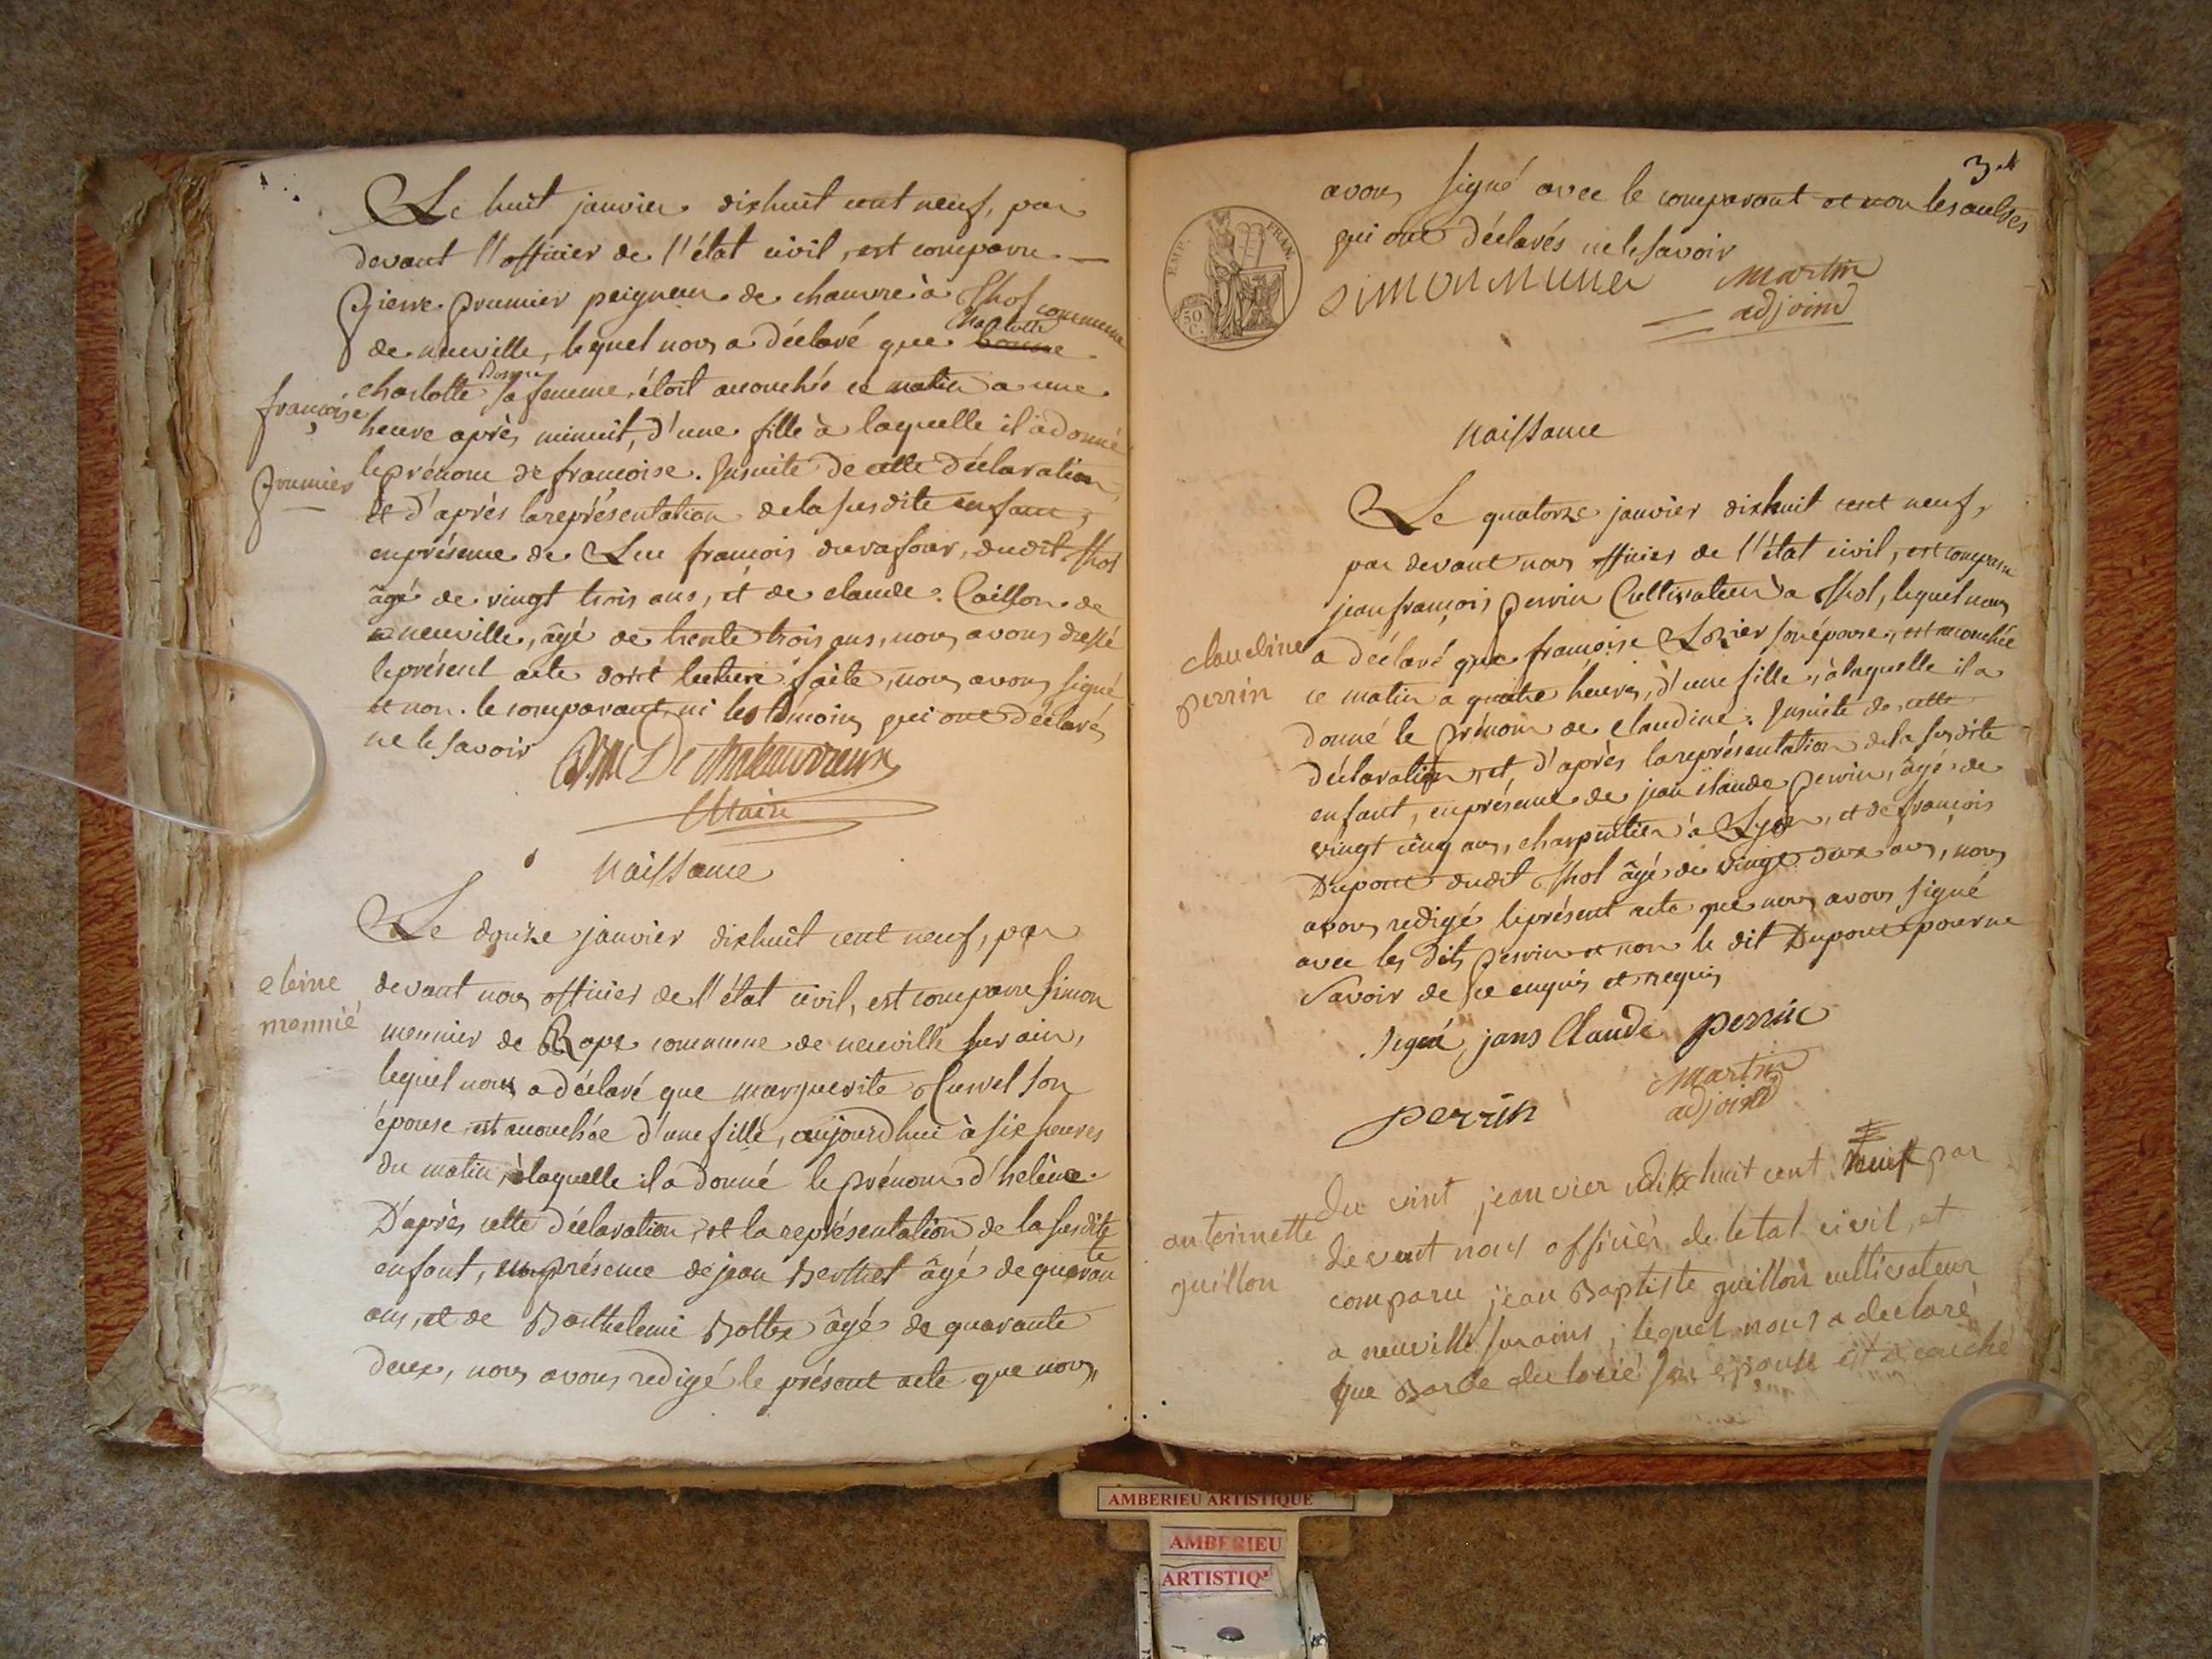 Le huit janvier dixhuit cent neuf, par
devant l'officier de l'état civil, est comparu
pierre prumier peigneur de chanvre à Thol commune
charlotte
de neuville, lequel nous a déclaré que bonne
bonne
charlotte sa femme, étoit accouchée ce matin a une
françoise
heure après minuit, d'une fille à laquelle il a donné
prumier
le prénom de françoise. Ensuite de cette déclaration,
et d'après la représentation de la susdite enfant,
en présence de Luc françois duvafour, dudit Thol
âgé de vingt trois ans, et de claude Caisson de
neuville, âgé de trente trois ans, nous avons dressé
le présent acte dont lecture faite, nous avons signé
et non le comparant, ni les témoins qui ont déclaré,
ne le savoir
Maire
Naissance
Le douze janvier dixhuit cent neuf, par
eleine
devant nous officier de l'état civil, est comparu simon
monnié
meunier de Rape commune de neuville sur ain,
lequel nous a déclaré que marguerite son
épouse, est accouchée d'une fille, aujourdhui à six heures
du matin, à laquelle il a donné le prénom d'helène.
D'après cette déclaration, et la représentation de la susdite
enfant, en présence de jean Berthet âgé de quarante
ans, et de Barthelemi Bottex âgé de quarante
deux, nous avons redigé le présent acte que nous,
3
avons signé avec le comparant et non les aultres
qui ont déclarés ne le savoir
EMP. FRAN.
50 C.
simon munier martin
adjoind
Naissance
Le quatorze janvier dixhuit cent neuf,
par devant nous officier de l'état civil, est comparu
jean françois perrin Cultivateur à Thol, lequel nous
claudine
a déclaré que françoise Lozier son épouse, est accouchée
perrin
ce matin a quatre heures, d'une fille, à laquelle il a
donné le prénom de claudine. Ensuite de cette
déclaration, et d'après la représentation de la susdite
enfant, en présence de jean claude perrin, âgé de
vingt cinq ans, charpentier à Lyon, et de françois
Dupont dudit Thol âgé de vingt deux ans, nous
avons redigé le présent acte que nous avons signé
avec les dits perrin et non le dit Dupont pour ne
savoir de ce enquis et requis
signé jans Claude perrin
martin
adjoind
perrin
Du vint jeanvier dix huit cent neuf par
antoinette
devant nous officier de letat civil, et
guillon
comparu jean Baptiste guillon cultivateur
a neuville sur ains, lequel nous a declaré
que Barbe son epouse est acouché
AMBERIEU ARTISTIQUE
AMBERIEU
ARTISTIQ